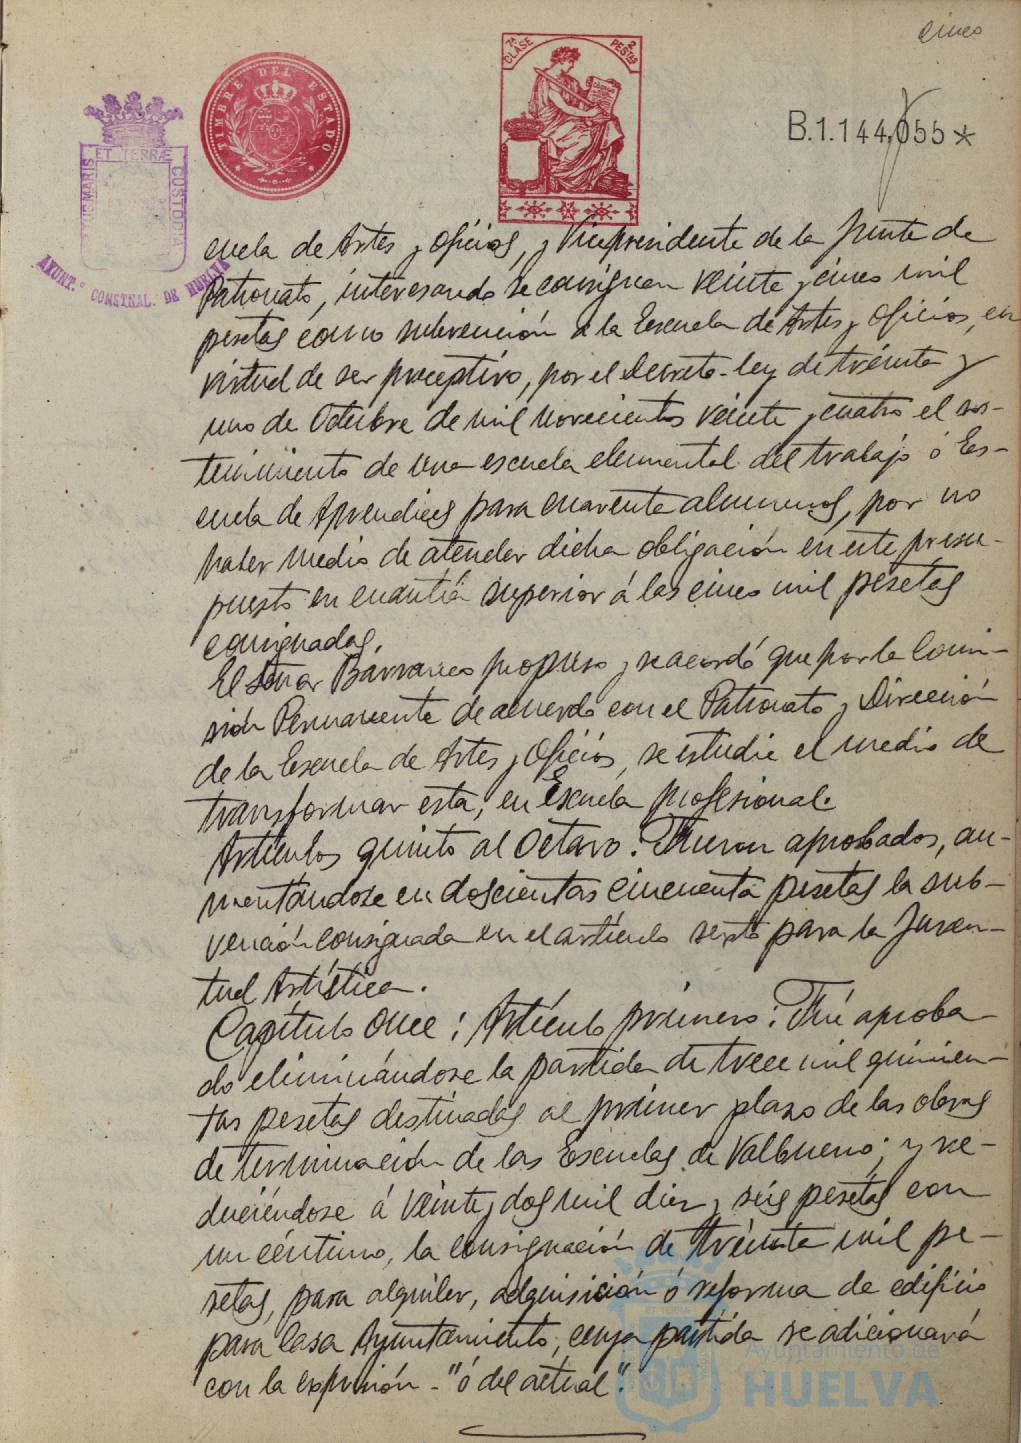 cinco
7ª CLASE
2 PESTAS
TIMBRE DEL ESTADO
MARIS ET TERRÆ CUSTODIA
AYUNT.º CONSTNAL. DE HUELVA
B.1.144,055*
cuela de Artes y Oficios, y Vicepresidente de la Junta de
Patronato, interesando se consignen veinte y cinco mil
pesetas como subvención a la Escuela de Artes y Oficios, en
virtud de ser preceptivo, por el Decreto-ley de treinta y
uno de Octubre de mil novecientos veinte y cuatro el sos-
tenimiento de una escuela elemental del trabajo ó Es-
cuela de Aprendices para cuarenta alumnos, por no
haber medio de atender dicha obligación en este presu-
puesto en cuantía superior á las cinco mil pesetas
consignadas.
El Señor Barranco propuso y se acordó que por la Comi-
sión Permanente de acuerdo con el Patronato y Dirección
de la Escuela de Artes y Oficios, se estudie el medio de
transformar esta, en Escuela profesional.
Artículos quinto al Octavo: Fueron aprobados, au-
mentándose en doscientas cincuenta pesetas la sub-
vención consignada en el artículo sexto para la Juven-
tud Artística.
Capítulo Once: Artículo primero: Fué aproba-
do eliminándose la partida de trece mil quinien-
tas pesetas destinadas al primer plazo de las obras
de terminación de las Escuelas de Valbueno; y re-
duciéndose á veinte y dos mil diez y séis pesetas con
un céntimo, la consignación de treinta mil pe-
setas, para alquiler, adquisición ó reforma de edificio
para Casa Ayuntamiento, cuya partida se adicionará
con la expresión - "ó del actual".
Ayuntamiento de
HUELVA